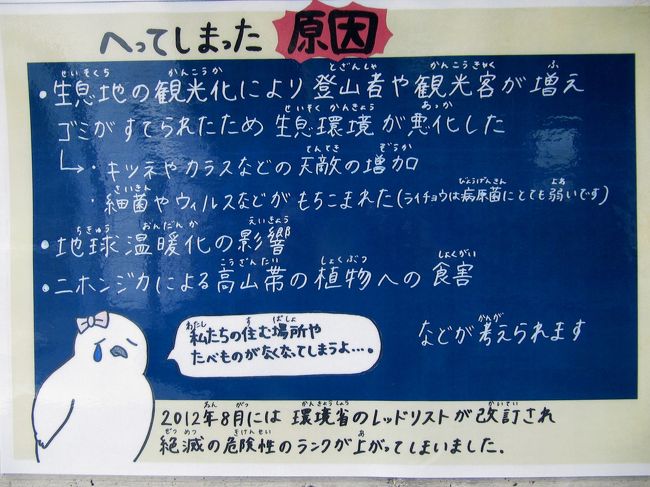 へってしまった 原因
・生息地の観光化により登山者や観光客が増え
ゴミがすてられたため生息環境が悪化した
↳・キツネやカラスなどの天敵の増加
・細菌やウィルスなどがもちこまれた(ライチョウは病原菌にとても弱いです)
・地球温暖化の影響
・ニホンジカによる高山帯の植物への食害
などが考えられます
私たちの住む場所や
たべものがなくなってしまうよ…。
2012年8月には環境省のレッドリストが改訂され
絶滅の危険性のランクが上がってしまいました.